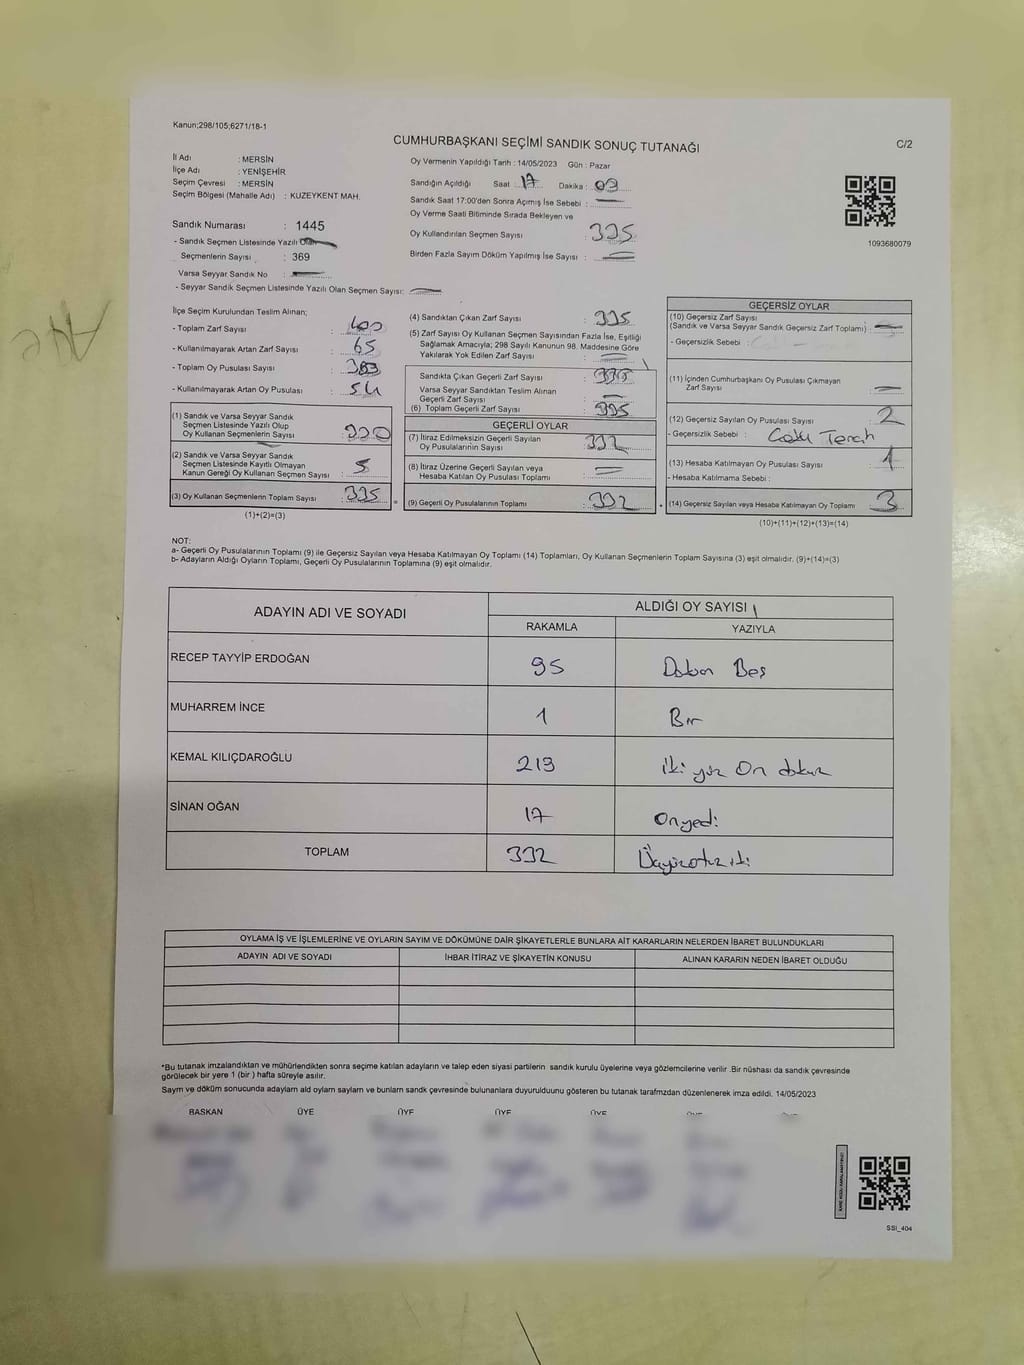 Kanun;298/105;6271/18-1
CUMHURBAŞKANI SEÇİMİ SANDIK SONUÇ TUTANAĞI
C/2
İl Adı : MERSİN
İlçe Adı : YENİŞEHİR
Seçim Çevresi : MERSİN
Seçim Bölgesi (Mahalle Adı) : KUZEYKENT MAH.
Oy Vermenin Yapıldığı Tarih : 14/05/2023 Gün : Pazar
Sandığın Açıldığı Saat : 17 Dakika : 09
Sandık Saat 17:00'den Sonra Açımış İse Sebebi :
Oy Verme Saati Bitiminde Sırada Bekleyen ve
Oy Kullandırılan Seçmen Sayısı : 335
Birden Fazla Sayım Döküm Yapılmış İse Sayısı :
1093680079
Sandık Numarası : 1445
- Sandık Seçmen Listesinde Yazılı Olan
Seçmenlerin Sayısı : 369
Varsa Seyyar Sandık No :
- Seyyar Sandık Seçmen Listesinde Yazılı Olan Seçmen Sayısı:
İlçe Seçim Kurulundan Teslim Alınan;
- Toplam Zarf Sayısı : 400
- Kullanılmayarak Artan Zarf Sayısı : 65
- Toplam Oy Pusulası Sayısı :
- Kullanılmayarak Artan Oy Pusulası : 54
(1) Sandık ve Varsa Seyyar Sandık
Seçmen Listesinde Yazılı Olup
Oy Kullanan Seçmenlerin Sayısı : 330
(2) Sandık ve Varsa Seyyar Sandık
Seçmen Listesinde Kayıtlı Olmayan
Kanun Gereği Oy Kullanan Seçmen Sayısı : 5
(3) Oy Kullanan Seçmenlerin Toplam Sayısı : 335
(1)+(2)=(3)
(4) Sandıktan Çıkan Zarf Sayısı : 335
(5) Zarf Sayısı Oy Kullanan Seçmen Sayısından Fazla İse, Eşitliği
Sağlamak Amacıyla; 298 Sayılı Kanunun 98. Maddesine Göre
Yakılarak Yok Edilen Zarf Sayısı :
Sandıkta Çıkan Geçerli Zarf Sayısı : 335
Varsa Seyyar Sandıktan Teslim Alınan
Geçerli Zarf Sayısı :
(6) Toplam Geçerli Zarf Sayısı : 335
GEÇERLİ OYLAR
(7) İtiraz Edilmeksizin Geçerli Sayılan
Oy Pusulalarının Sayısı : 332
(8) İtiraz Üzerine Geçerli Sayılan veya
Hesaba Katılan Oy Pusulası Toplamı :
(9) Geçerli Oy Pusulalarının Toplamı : 332
GEÇERSİZ OYLAR
(10) Geçersiz Zarf Sayısı
(Sandık ve Varsa Seyyar Sandık Geçersiz Zarf Toplamı) :
- Geçersizlik Sebebi :
(11) İçinden Cumhurbaşkanı Oy Pusulası Çıkmayan
Zarf Sayısı :
(12) Geçersiz Sayılan Oy Pusulası Sayısı : 2
- Geçersizlik Sebebi : Çoklu Tercih
(13) Hesaba Katılmayan Oy Pusulası Sayısı : 1
- Hesaba Katılmama Sebebi :
(14) Geçersiz Sayılan veya Hesaba Katılmayan Oy Toplamı : 3
(10)+(11)+(12)+(13)=(14)
NOT:
a- Geçerli Oy Pusulalarının Toplamı (9) ile Geçersiz Sayılan veya Hesaba Katılmayan Oy Toplamı (14) Toplamları, Oy Kullanan Seçmenlerin Toplam Sayısına (3) eşit olmalıdır. (9)+(14)=(3)
b- Adayların Aldığı Oyların Toplamı, Geçerli Oy Pusulalarının Toplamına (9) eşit olmalıdır.
ADAYIN ADI VE SOYADI ALDIĞI OY SAYISI
RAKAMLA YAZIYLA
RECEP TAYYİP ERDOĞAN 95 Doksan Beş
MUHARREM İNCE 1 Bir
KEMAL KILIÇDAROĞLU 219 İki yüz On dokuz
SİNAN OĞAN 17 Onyedi
TOPLAM 332 Üçyüzotuziki
OYLAMA İŞ VE İŞLEMLERİNE VE OYLARIN SAYIM VE DÖKÜMÜNE DAİR ŞİKAYETLERLE BUNLARA AİT KARARLARIN NELERDEN İBARET BULUNDUKLARI
ADAYIN ADI VE SOYADI İHBAR İTİRAZ VE ŞİKAYETİN KONUSU ALINAN KARARIN NEDEN İBARET OLDUĞU
*Bu tutanak imzalandıktan ve mühürlendikten sonra seçime katılan adayların ve talep eden siyasi partilerin sandık kurulu üyelerine veya gözlemcilerine verilir .Bir nüshası da sandık çevresinde
görülecek bir yere 1 (bir ) hafta süreyle asılır.
Sayım ve döküm sonucunda adayların ald oyların sayları ve bunların sandk çevresinde bulunanlara duyurulduunu gösteren bu tutanak tarafmzdan düzenlenerek imza edildi. 14/05/2023
BAŞKAN ÜYE ÜYE ÜYE ÜYE
SSİ_404